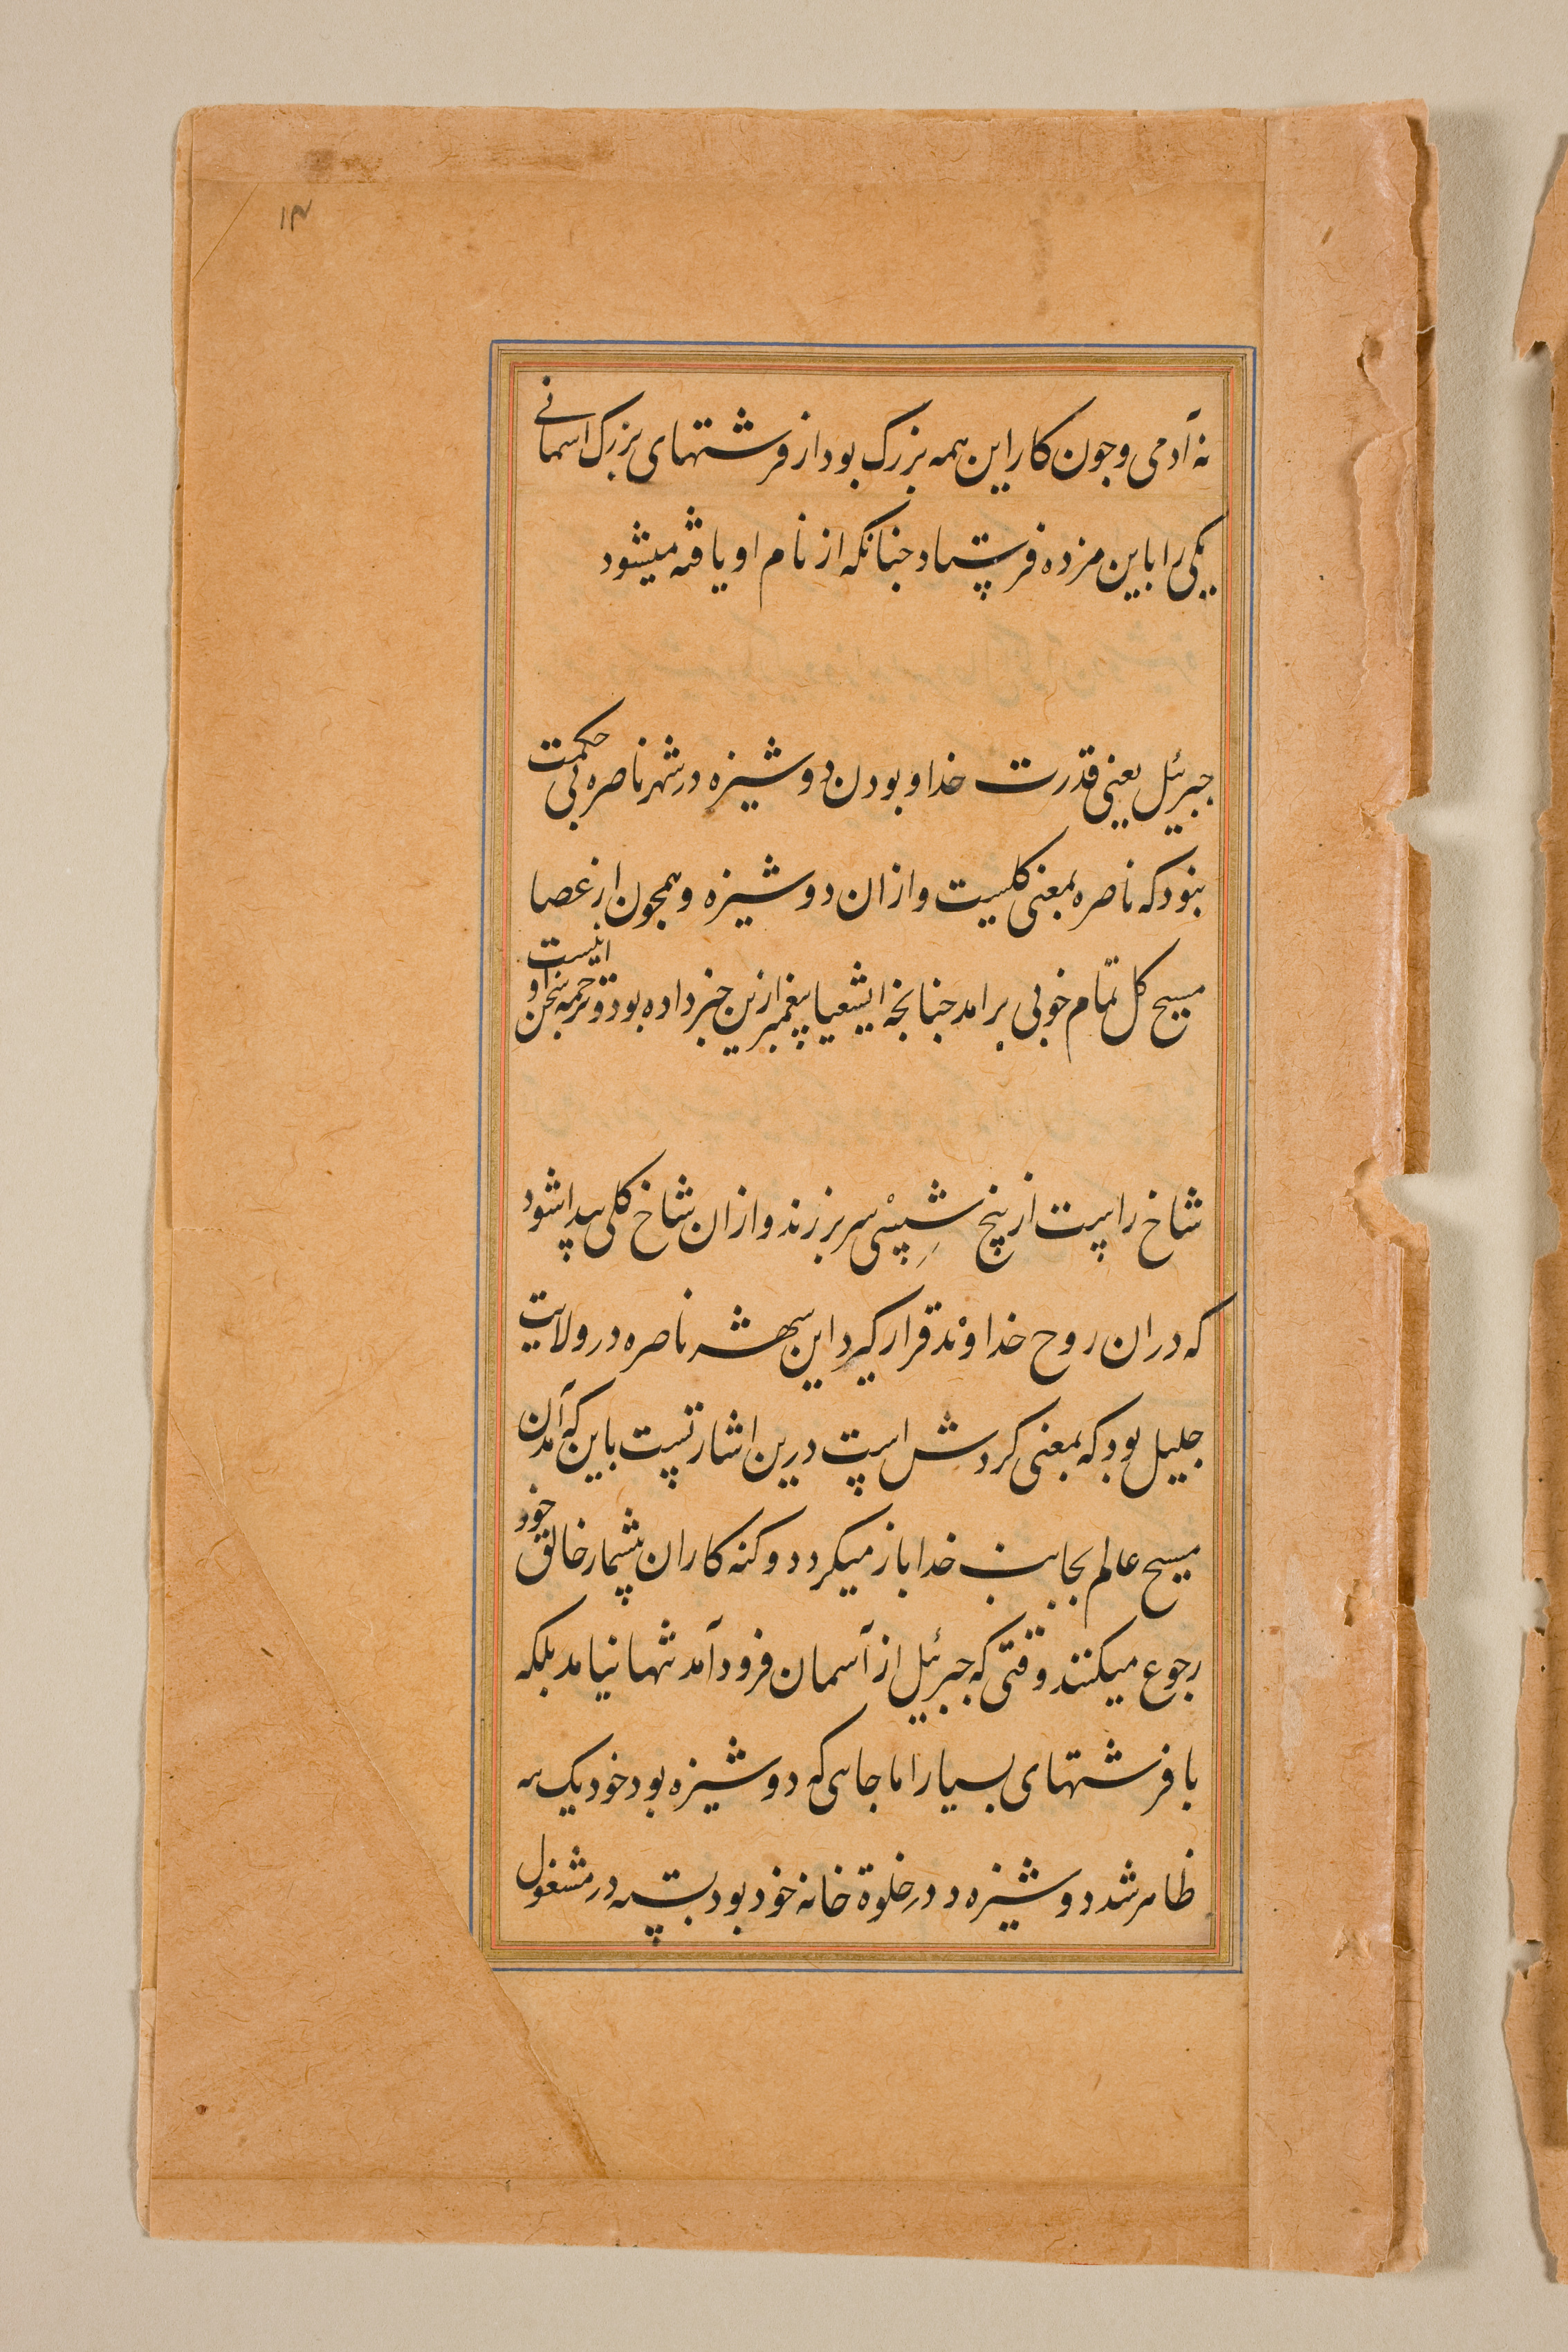 ۱۳
نه آدمی و جون کار این همه بزرک بود از فرشتهای بزرک اسمانی
یکی را باین مزده فرستاد جنانکه از نام او یافته میشود
جبرئیل یعنی قدرت خدا و بودن دوشیزه در شهر ناصره بی حکمت
نبود که ناصره بمعنی کلیست و ازان دوشیزه و همجون از عصا
مسیح کل تمام خوبی برامد جنانجه ایشعیا پیغمبر ازین خبر داده بود و ترجمه سخن او اینست
شاخ راست از بیخ شِیسْی سر برزند و ازان شاخ کلی پیدا شود
که دران روح خداوند قرار کیرد این شهر ناصره در ولایت
جلیل بود که بمعنی کردش است درین اشارتست باین که آمدن
مسیح عالم بجانب خدا باز میکردد و کنه کاران بیشمار خالق خود
رجوع میکنند وقتی که جبرئیل از آسمان فرود آمد تنها نیامد بلکه
با فرشتهای بسیار اما جاهی که دوشیزه بود خود یک نه
ظاهر شد دوشیزه در خلوة خانه خود بود بسته در مشغول